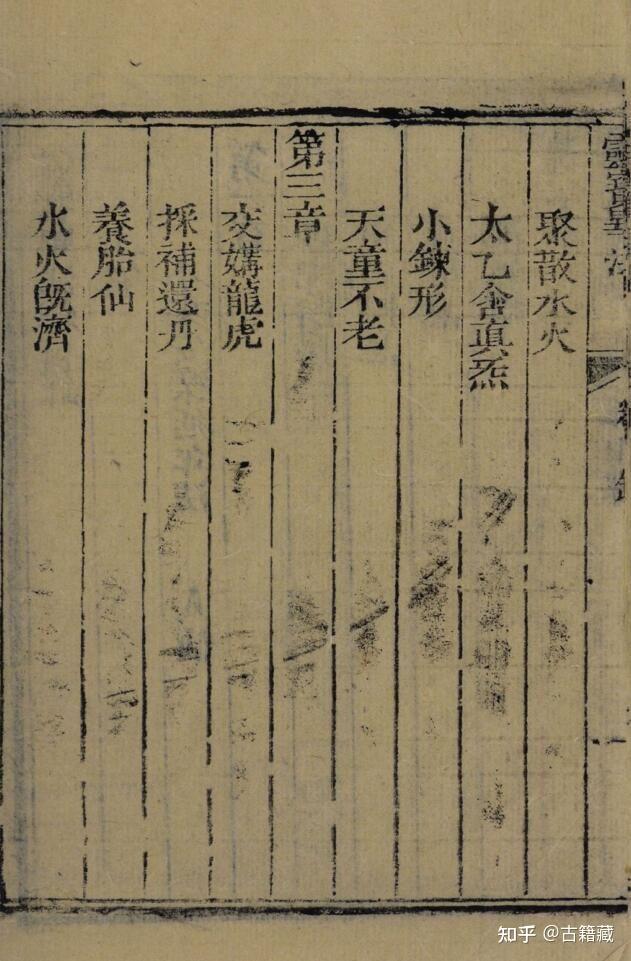 靈寶畢法
聚散水火
太乙舍眞炁
小鍊形
天童不老
第三章
交媾龍虎
採補還丹
養胎仙
水火既濟
知乎 @古籍藏